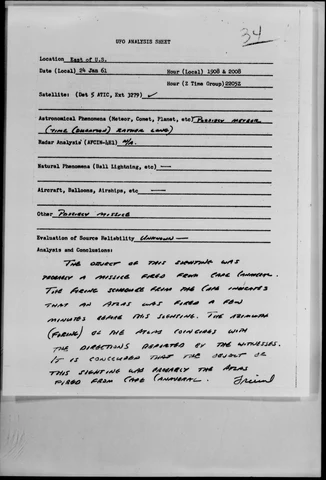 34
UFO ANALYSIS SHEET
Location East of U.S.
Date (Local) 24 Jan 61 Hour (Local) 1908 & 2008
Hour (Z Time Group) 2205Z
Satellite: (Det 5 ATIC, Ext 3279) ✓
Astronomical Phenomena (Meteor, Comet, Planet, etc) POSSIBLY METEOR
(TIME (DURATION) RATHER LONG)
Radar Analysis (AFCIN-4E1) N/A.
Natural Phenomena (Ball Lightning, etc) —
Aircraft, Balloons, Airships, etc —
Other POSSIBLY MISSILE
Evaluation of Source Reliability UNKNOWN
Analysis and Conclusions:
THE OBJECT OF THIS SIGHTING WAS
PROBABLY A MISSILE FIRED FROM CAPE CANAVERAL.
THE FIRING SCHEDULE FROM THE CAPE INDICATES
THAT AN ATLAS WAS FIRED A FEW
MINUTES BEFORE THIS SIGHTING. THE AZIMUTH
(FIRING) OF THE ATLAS COINCIDES WITH
THE DIRECTIONS REPORTED BY THE WITNESSES.
IT IS CONCLUDED THAT THE OBJECT OF
THIS SIGHTING WAS PROBABLY THE ATLAS
FIRED FROM CAPE CANAVERAL. Friend